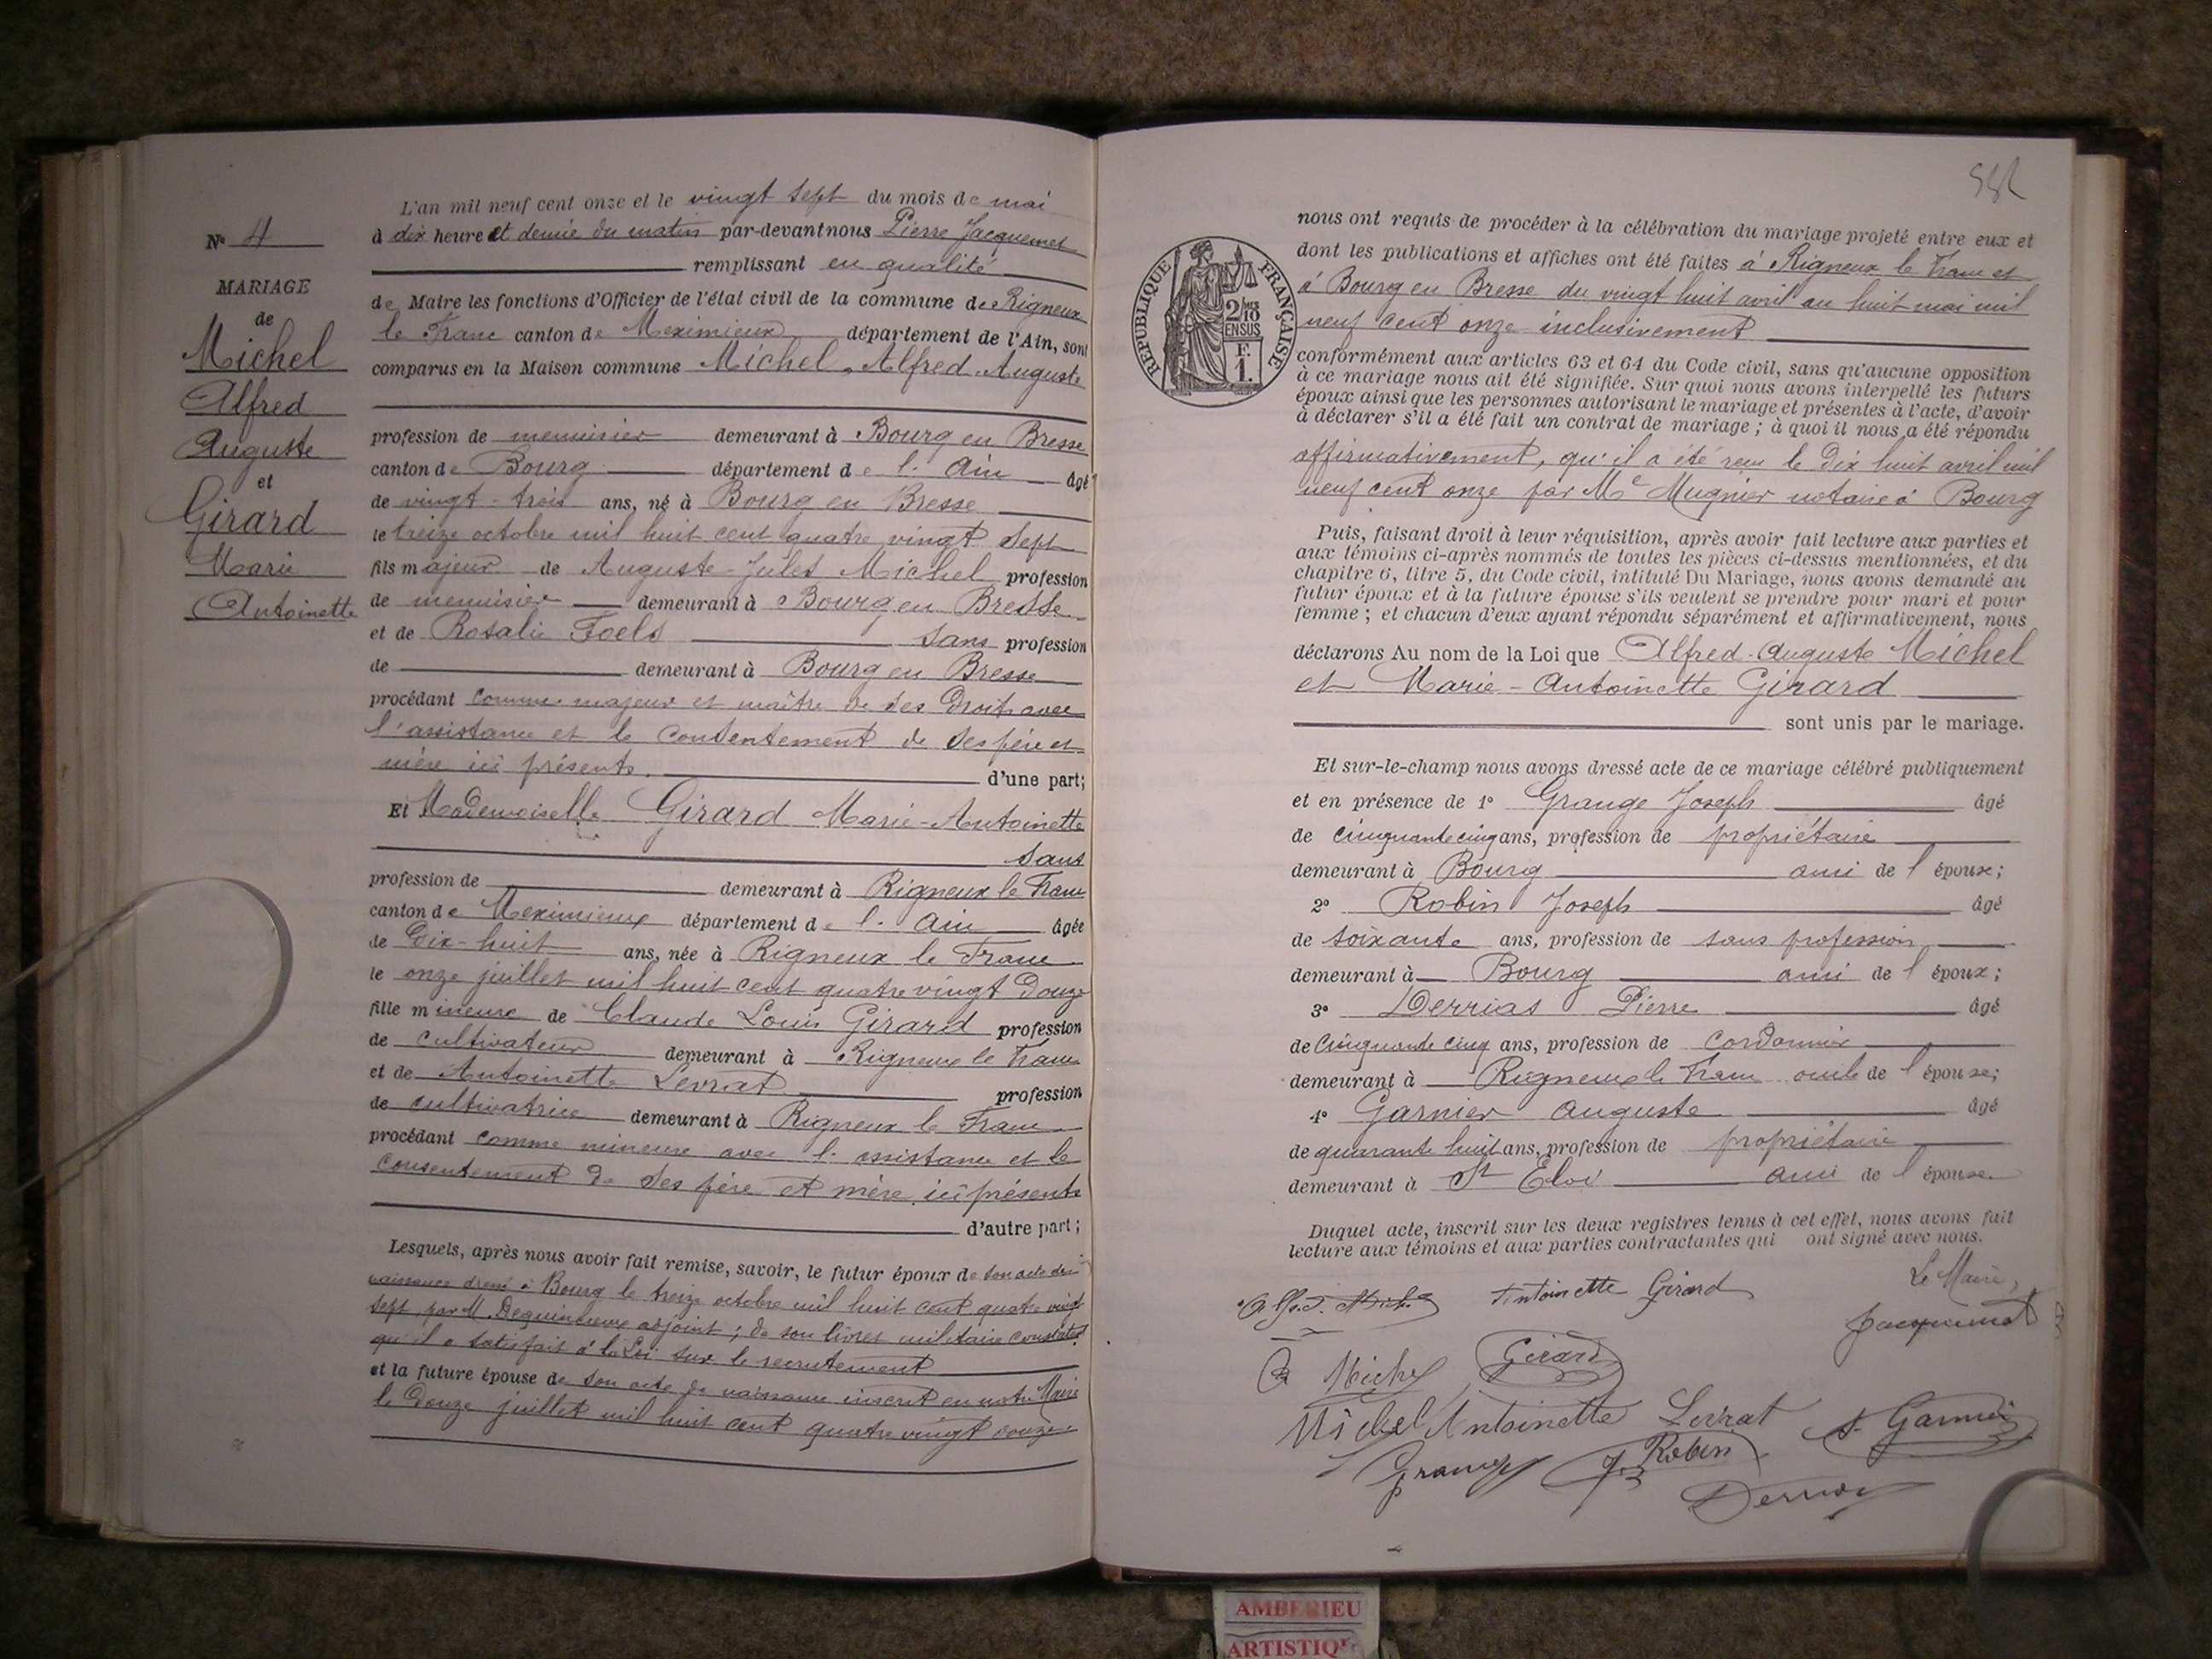 N° 4
MARIAGE
de
Michel
Alfred
Auguste
et
Girard
Marie
Antoinette
L'an mil neuf cent onze et le vingt sept du mois de mai
à dix heure et demie du matin par-devant nous Pierre Jacquemet
remplissant en qualité
de Maire les fonctions d'Officier de l'état civil de la commune de Rigneux
le Franc canton de Meximieux département de l'Ain, sont
comparus en la Maison commune Michel Alfred Auguste
profession de menuisier demeurant à Bourg en Bresse
canton de Bourg département de l'Ain âgé
de vingt-trois ans, né à Bourg en Bresse
le treize octobre mil huit cent quatre vingt sept
fils majeur de Auguste-Jules Michel profession
de menuisier demeurant à Bourg en Bresse
et de Rosalie Foels sans profession
de demeurant à Bourg en Bresse
procédant comme majeur et maître de ses droits avec
l'assistance et le consentement de ses père et
mère ici présents. d'une part;
Et Mademoiselle Girard Marie-Antoinette
sans
profession de demeurant à Rigneux le Franc
canton de Meximieux département de l'Ain âgée
de Dix-huit ans, née à Rigneux le Franc
le onze juillet mil huit cent quatre vingt Douze
fille mineure de Claude Louis Girard profession
de cultivateur demeurant à Rigneux le Franc
et de Antoinette Levrat profession
de cultivatrice demeurant à Rigneux le Franc
procédant comme mineure avec l'assistance et le
consentement de ses père et mère ici présents
d'autre part;
Lesquels, après nous avoir fait remise, savoir, le futur époux de son acte de
naissance dressé à Bourg le treize octobre mil huit cent quatre vingt
sept, par M. adjoint; de son livret militaire constatant
qu'il a satisfait à la Loi sur le recrutement
et la future épouse de son acte de naissance inscrit en notre Mairie
le Douze juillet mil huit cent quatre vingt douze
552
RÉPUBLIQUE FRANÇAISE
2/10
EN SUS
F.
1.
nous ont requis de procéder à la célébration du mariage projeté entre eux et
dont les publications et affiches ont été faites à Rigneux le Franc et
à Bourg en Bresse du vingt huit avril au huit mai mil
neuf cent onze inclusivement
conformément aux articles 63 et 64 du Code civil, sans qu'aucune opposition
à ce mariage nous ait été signifiée. Sur quoi nous avons interpellé les futurs
époux ainsi que les personnes autorisant le mariage et présentes à l'acte, d'avoir
à déclarer s'il a été fait un contrat de mariage; à quoi il nous a été répondu
affirmativement, qu'il a été reçu le dix huit avril mil
neuf cent onze par Me Mugnier notaire à Bourg
Puis, faisant droit à leur réquisition, après avoir fait lecture aux parties et
aux témoins ci-après nommés de toutes les pièces ci-dessus mentionnées, et du
chapitre 6, titre 5, du Code civil, intitulé Du Mariage, nous avons demandé au
futur époux et à la future épouse s'ils veulent se prendre pour mari et pour
femme; et chacun d'eux ayant répondu séparément et affirmativement, nous
déclarons Au nom de la Loi que Alfred-Auguste Michel
et Marie-Antoinette Girard
sont unis par le mariage.
Et sur-le-champ nous avons dressé acte de ce mariage célébré publiquement
et en présence de 1° Grange Joseph âgé
de cinquante cinq ans, profession de propriétaire
demeurant à Bourg ami de l'époux;
2° Robin Joseph âgé
de soixante ans, profession de sans profession
demeurant à Bourg ami de l'époux;
3° Derrias Pierre âgé
de Cinquante cinq ans, profession de Cordonnier
demeurant à Rigneux le Franc oncle de l'épouse;
4° Garnier Auguste âgé
de quarante huit ans, profession de propriétaire
demeurant à St Eloi ami de l'épouse
Duquel acte, inscrit sur les deux registres tenus à cet effet, nous avons fait
lecture aux témoins et aux parties contractantes qui ont signé avec nous.
Alfred. Michel Antoinette Girard Le Maire,
Jacquemet
Michel Girard
Michel Antoinette Levrat A. Garnier
Grange J. Robin
Derrias
AMBERIEU
ARTISTIQU